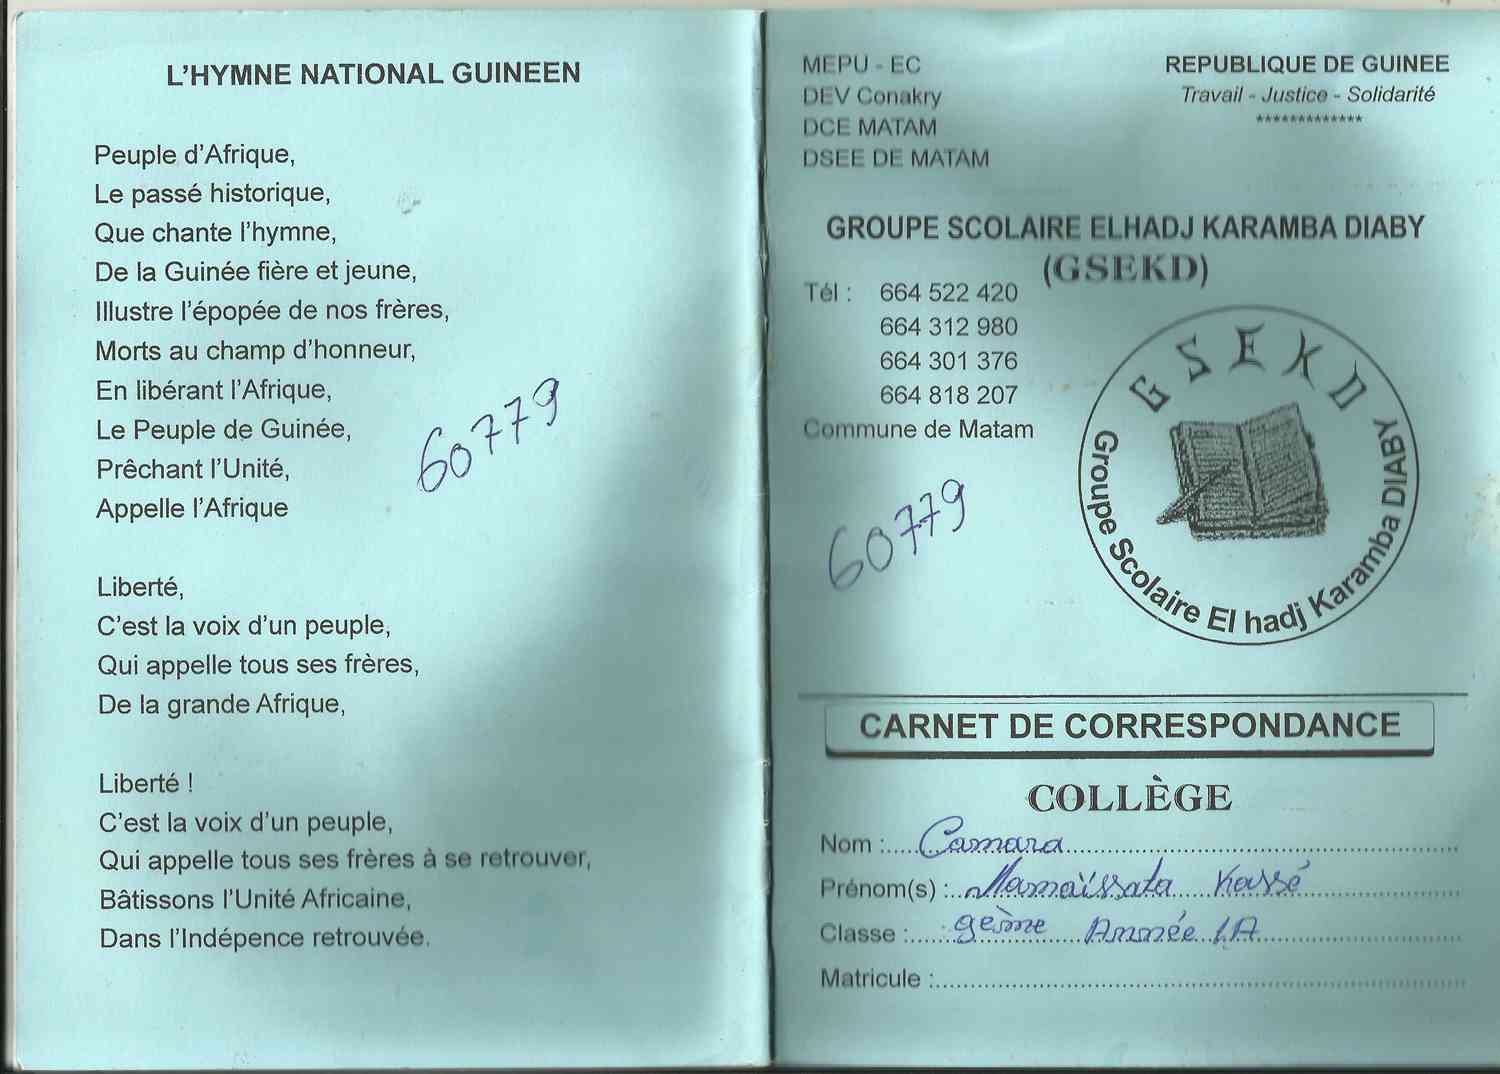 L'HYMNE NATIONAL GUINEEN
Peuple d'Afrique,
Le passé historique,
Que chante l'hymne,
De la Guinée fière et jeune,
Illustre l'épopée de nos frères,
Morts au champ d'honneur,
En libérant l'Afrique,
Le Peuple de Guinée,
Prêchant l'Unité,
Appelle l'Afrique
60779
Liberté,
C'est la voix d'un peuple,
Qui appelle tous ses frères,
De la grande Afrique,
Liberté !
C'est la voix d'un peuple,
Qui appelle tous ses frères à se retrouver,
Bâtissons l'Unité Africaine,
Dans l'Indépence retrouvée.
MEPU - EC
DEV Conakry
DCE MATAM
DSEE DE MATAM
REPUBLIQUE DE GUINEE
Travail - Justice - Solidarité
*************
GROUPE SCOLAIRE ELHADJ KARAMBA DIABY
(GSEKD)
Tél : 664 522 420
664 312 980
664 301 376
664 818 207
Commune de Matam
60779
GSEKD
Groupe Scolaire El hadj Karamba DIABY
CARNET DE CORRESPONDANCE
COLLÈGE
Nom : Camara
Prénom(s) : Mamaïssata Kassé
Classe : 9ème Année 1A
Matricule :